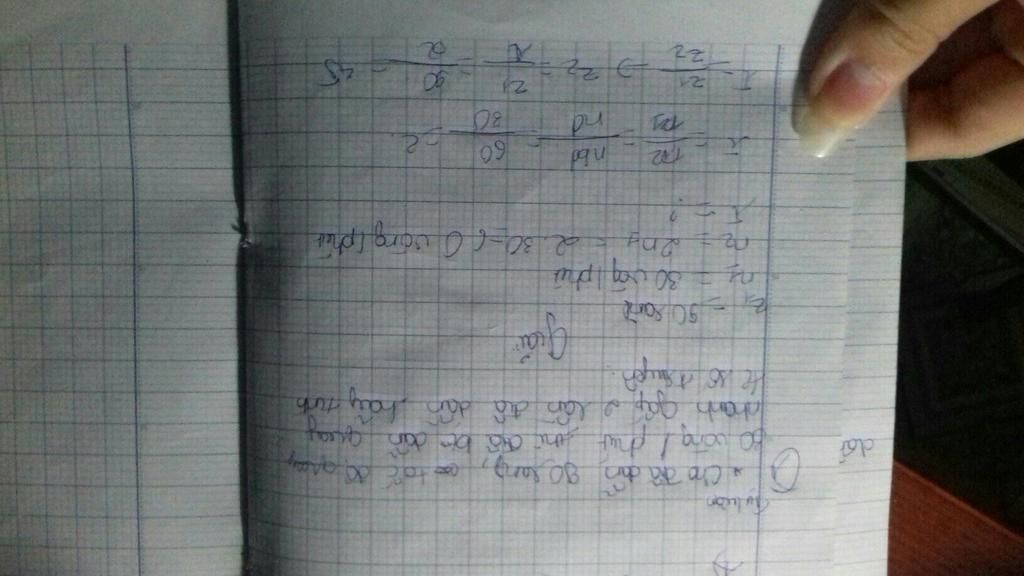 Tự luận
* Cho đĩa dẫn 90 răng, tốc độ quay
30 vòng / phút, khi đĩa bị dẫn quay
nhanh gấp 2 lần đĩa dẫn, hãy tính
tỉ số truyền.
Giải
Z1 = 90 răng
n1 = 30 vòng / phút
n2 = 2n1 = 2.30 = 60 vòng / phút
i = ?
i = n2/n1 = nbd/nd = 60/30 = 2.
i = Z1/Z2 → Z2 = Z1/i = 90/2 = 45
dẫn